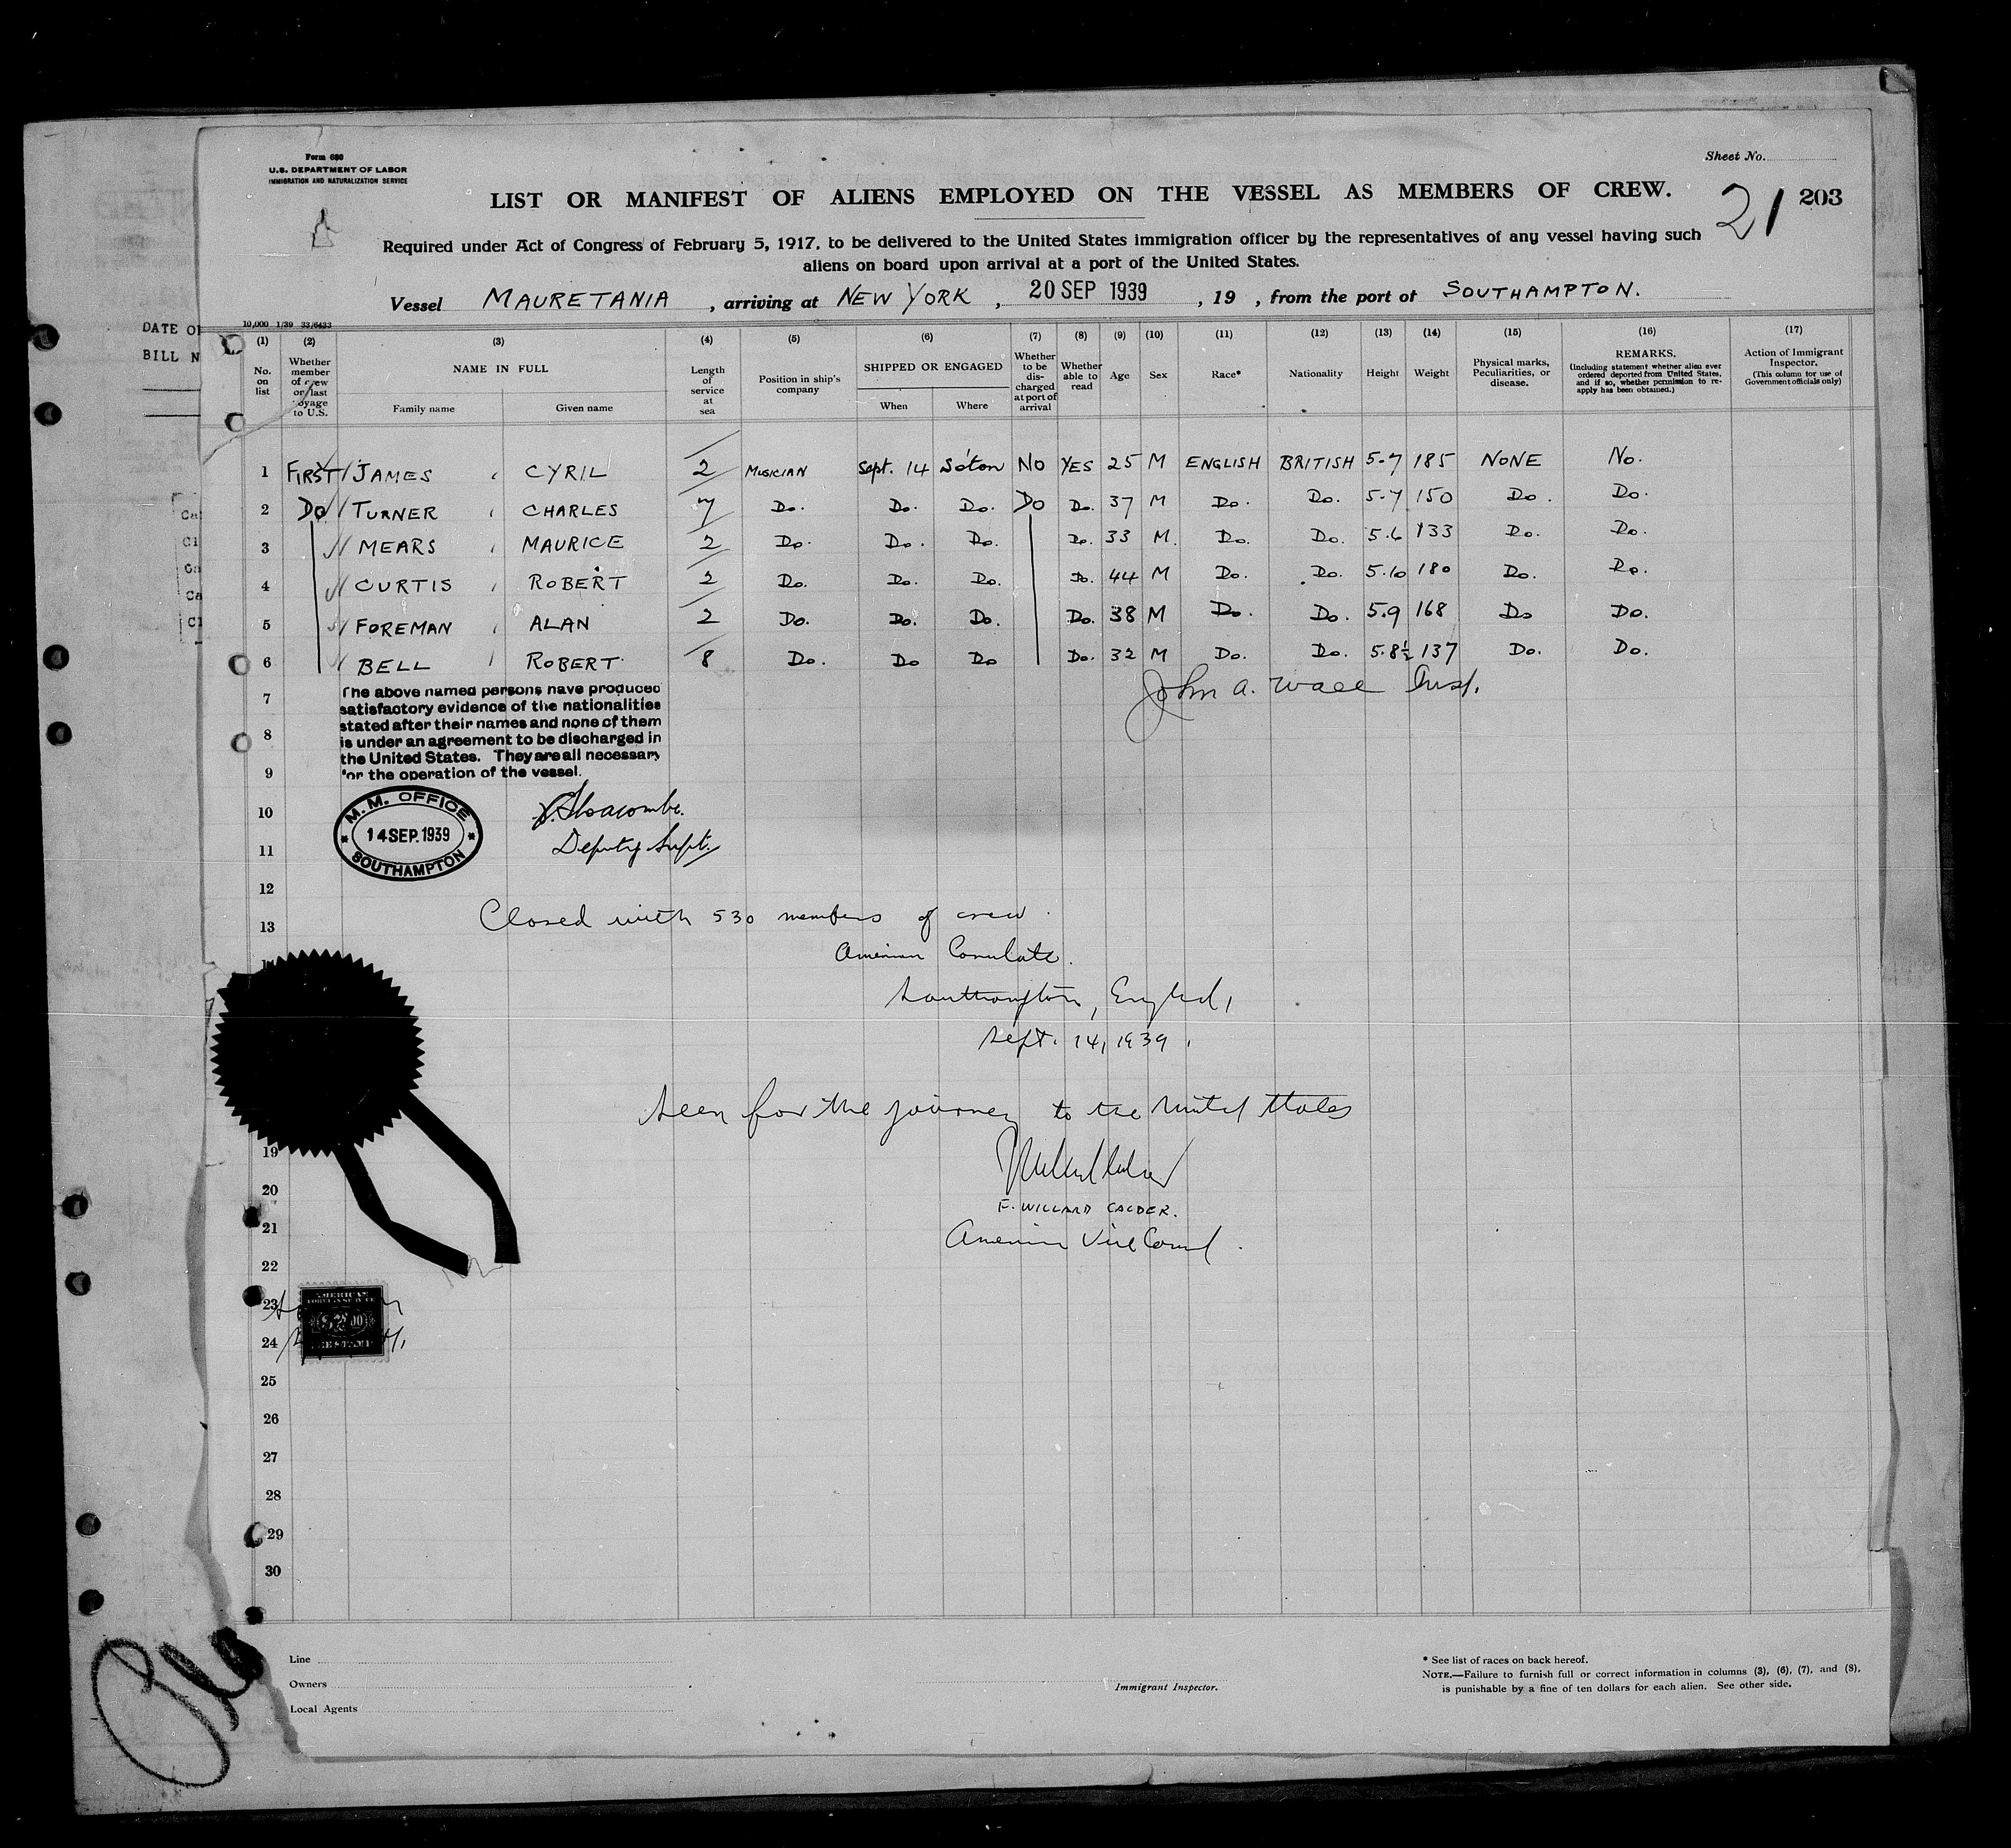 Form 680
U.S. DEPARTMENT OF LABOR
IMMIGRATION AND NATURALIZATION SERVICE
Sheet No.
LIST OR MANIFEST OF ALIENS EMPLOYED ON THE VESSEL AS MEMBERS OF CREW.
21 203
Required under Act of Congress of February 5, 1917, to be delivered to the United States immigration officer by the representatives of any vessel having such
aliens on board upon arrival at a port of the United States.
Vessel MAURETANIA , arriving at NEW YORK , 20 SEP 1939 , 19 , from the port of SOUTHAMPTON.
DATE OF
BILL N
10,000 1/39 33/6433
(1) (2) (3) (4) (5) (6) (7) (8) (9) (10) (11) (12) (13) (14) (15) (16) (17)
No. on list
Whether member of crew on last voyage to U.S.
NAME IN FULL
Family name Given name
Length of service at sea
Position in ship's company
SHIPPED OR ENGAGED
When Where
Whether to be discharged at port of arrival
Whether able to read
Age
Sex
Race*
Nationality
Height
Weight
Physical marks, Peculiarities, or disease.
REMARKS.
(Including statement whether alien ever ordered deported from United States, and if so, whether permission to re-apply has been obtained.)
Action of Immigrant Inspector.
(This column for use of Government officials only)
1 FIRST JAMES , CYRIL 2 MUSICIAN Sept. 14 So'ton NO YES 25 M ENGLISH BRITISH 5-7 185 NONE No.
2 Do TURNER , CHARLES 7 Do. Do. Do. Do Do. 37 M Do. Do. 5-7 150 Do. Do.
3 MEARS , MAURICE 2 Do. Do. Do. Do. 33 M. Do. Do. 5.6 133 Do. Do.
4 CURTIS , ROBERT 2 Do. Do. Do. Do. 44 M Do. Do. 5.10 180 Do. Do.
5 FOREMAN , ALAN 2 Do. Do. Do. Do. 38 M Do. Do. 5.9 168 Do Do.
6 BELL , ROBERT 8 Do. Do Do Do. 32 M Do. Do. 5.8½ 137 Do. Do.
John A. Wall Insp.
7
8
9
The above named persons have produced
satisfactory evidence of the nationalities
stated after their names and none of them
is under an agreement to be discharged in
the United States. They are all necessary
for the operation of the vessel.
10
11
12
M. M. OFFICE
14 SEP. 1939
SOUTHAMPTON
Deputy Supt.
13
Closed with 530 members of crew.
American Consulate.
Southampton, England,
Sept. 14, 1939.
Seen for the journey to the United States
F. WILLARD CALDER.
American Vice Consul.
19
20
21
22
23
24
AMERICAN
FOREIGN SERVICE
$2.00
FEE STAMP
25
26
27
28
29
30
Line
Owners
Local Agents
Immigrant Inspector.
* See list of races on back hereof.
NOTE.—Failure to furnish full or correct information in columns (3), (6), (7), and (8),
is punishable by a fine of ten dollars for each alien. See other side.